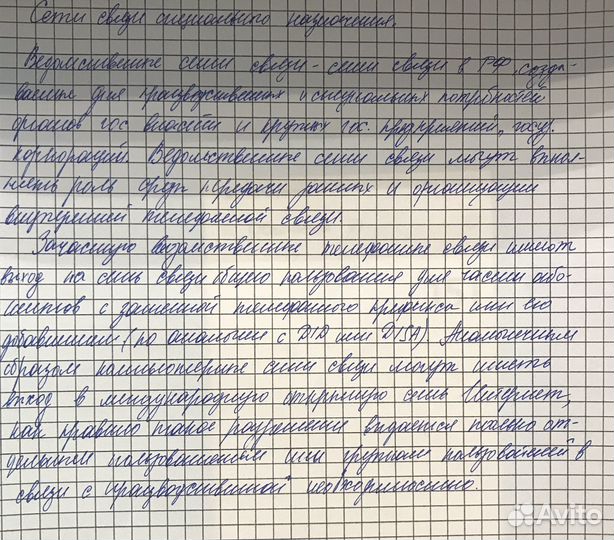 Сети связи специального назначения.
Ведомственные сети связи - сети связи в РФ, созда-
ваемые для производственных и специальных потребностей
органов гос. власти и крупных гос. предприятий, госу.
корпораций. Ведомственные сети связи могут выпол-
нять роль сред передачи данных и организации
внутренней телефонной связи.
Зачастую ведомственные телефонные связи имеют
выход на сеть связи общего пользования для части або-
нентов с заменой телефонного префикса или его
добавлением (по аналогии с DID или DISA). Аналогичным
образом компьютерные сети связи могут иметь
выход в международную открытую сеть Интернет,
как правило такое разрешение выдается только от-
дельным пользователям или группам пользователей в
связи с производственной необходимостью.
Avito